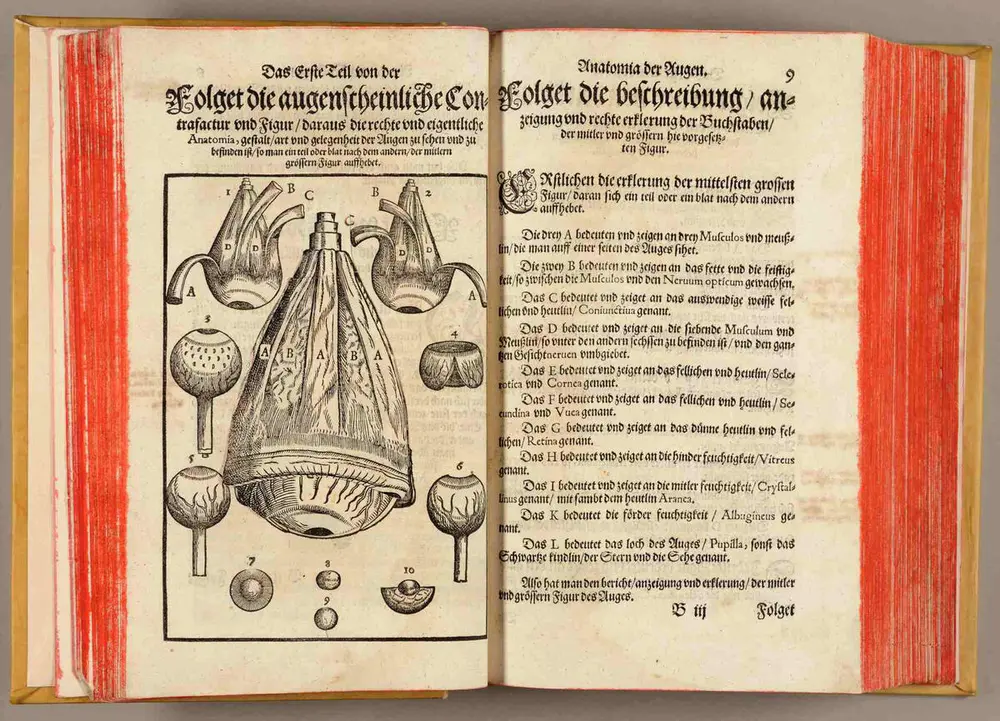 Das Erste Teil von der
Folget die augenscheinliche Con-
trafactur vnd Figur/ daraus die rechte vnd eigentliche
Anatomia, gestalt/art vnd gelegenheit der Augen zu sehen vnd zu
befinden ist/ so man ein teil oder blat nach dem andern/ der mitlern
grössern Figur auffhebet.
1 B C B 2
C
D D D D
A A
3 4
A B A B A
5 6
7 8 10
9
Anatomia der Augen. 9
Folget die beschreibung/ an-
zeigung vnd rechte erklerung der Buchstaben/
der mitler vnd grössern hie vorgesetz-
ten Figur.
ERstlichen die erklerung der mittelsten grossen
Figur/ daran sich ein teil oder ein blat nach dem andern
auffhebet.
Die drey A bedeuten vnd zeigen an drey Musculos vnd meuß-
lin/ die man auff einer seiten des Auges sihet.
Die zwey B bedeuten vnd zeigen an das fette vnd die feistig-
keit/ so zwischen die Musculos vnd den Neruum opticum gewachsen.
Das C bedeutet vnd zeiget an das auswendige weisse fel-
lichen vnd heutlin/ Coniunctiua genant.
Das D bedeutet vnd zeiget an die siebende Musculum vnd
Meußlin/ so vnter den andern sechssen zu befinden ist/ vnd den gan-
tzen Gesichtneruen vmbgiebet.
Das E bedeutet vnd zeiget an das fellichen vnd heutlin/ Scle-
rotica vnd Cornea genant.
Das F bedeutet vnd zeiget an das fellichen vnd heutlin/ Se-
cundina vnd Vuea genant.
Das G bedeutet vnd zeiget an das dünne heutlin vnd fel-
lichen/ Retina genant.
Das H bedeutet vnd zeiget an die hinder feuchtigkeit/ Vitreus
genant.
Das I bedeutet vnd zeiget an die mitler feuchtigkeit/ Crystal-
linus genant/ mit sambt dem heutlin Aranea.
Das K bedeutet die förder feuchtigkeit / Albugineus ge-
nant.
Das L bedeutet das loch des Auges/ Pupilla, sonst das
Schwartze kindlin/ der Stern vnd die Sehe genant.
Also hat man den bericht/ anzeigung vnd erklerung/ der mitler
vnd grössern Figur des Auges.
B iij Folget